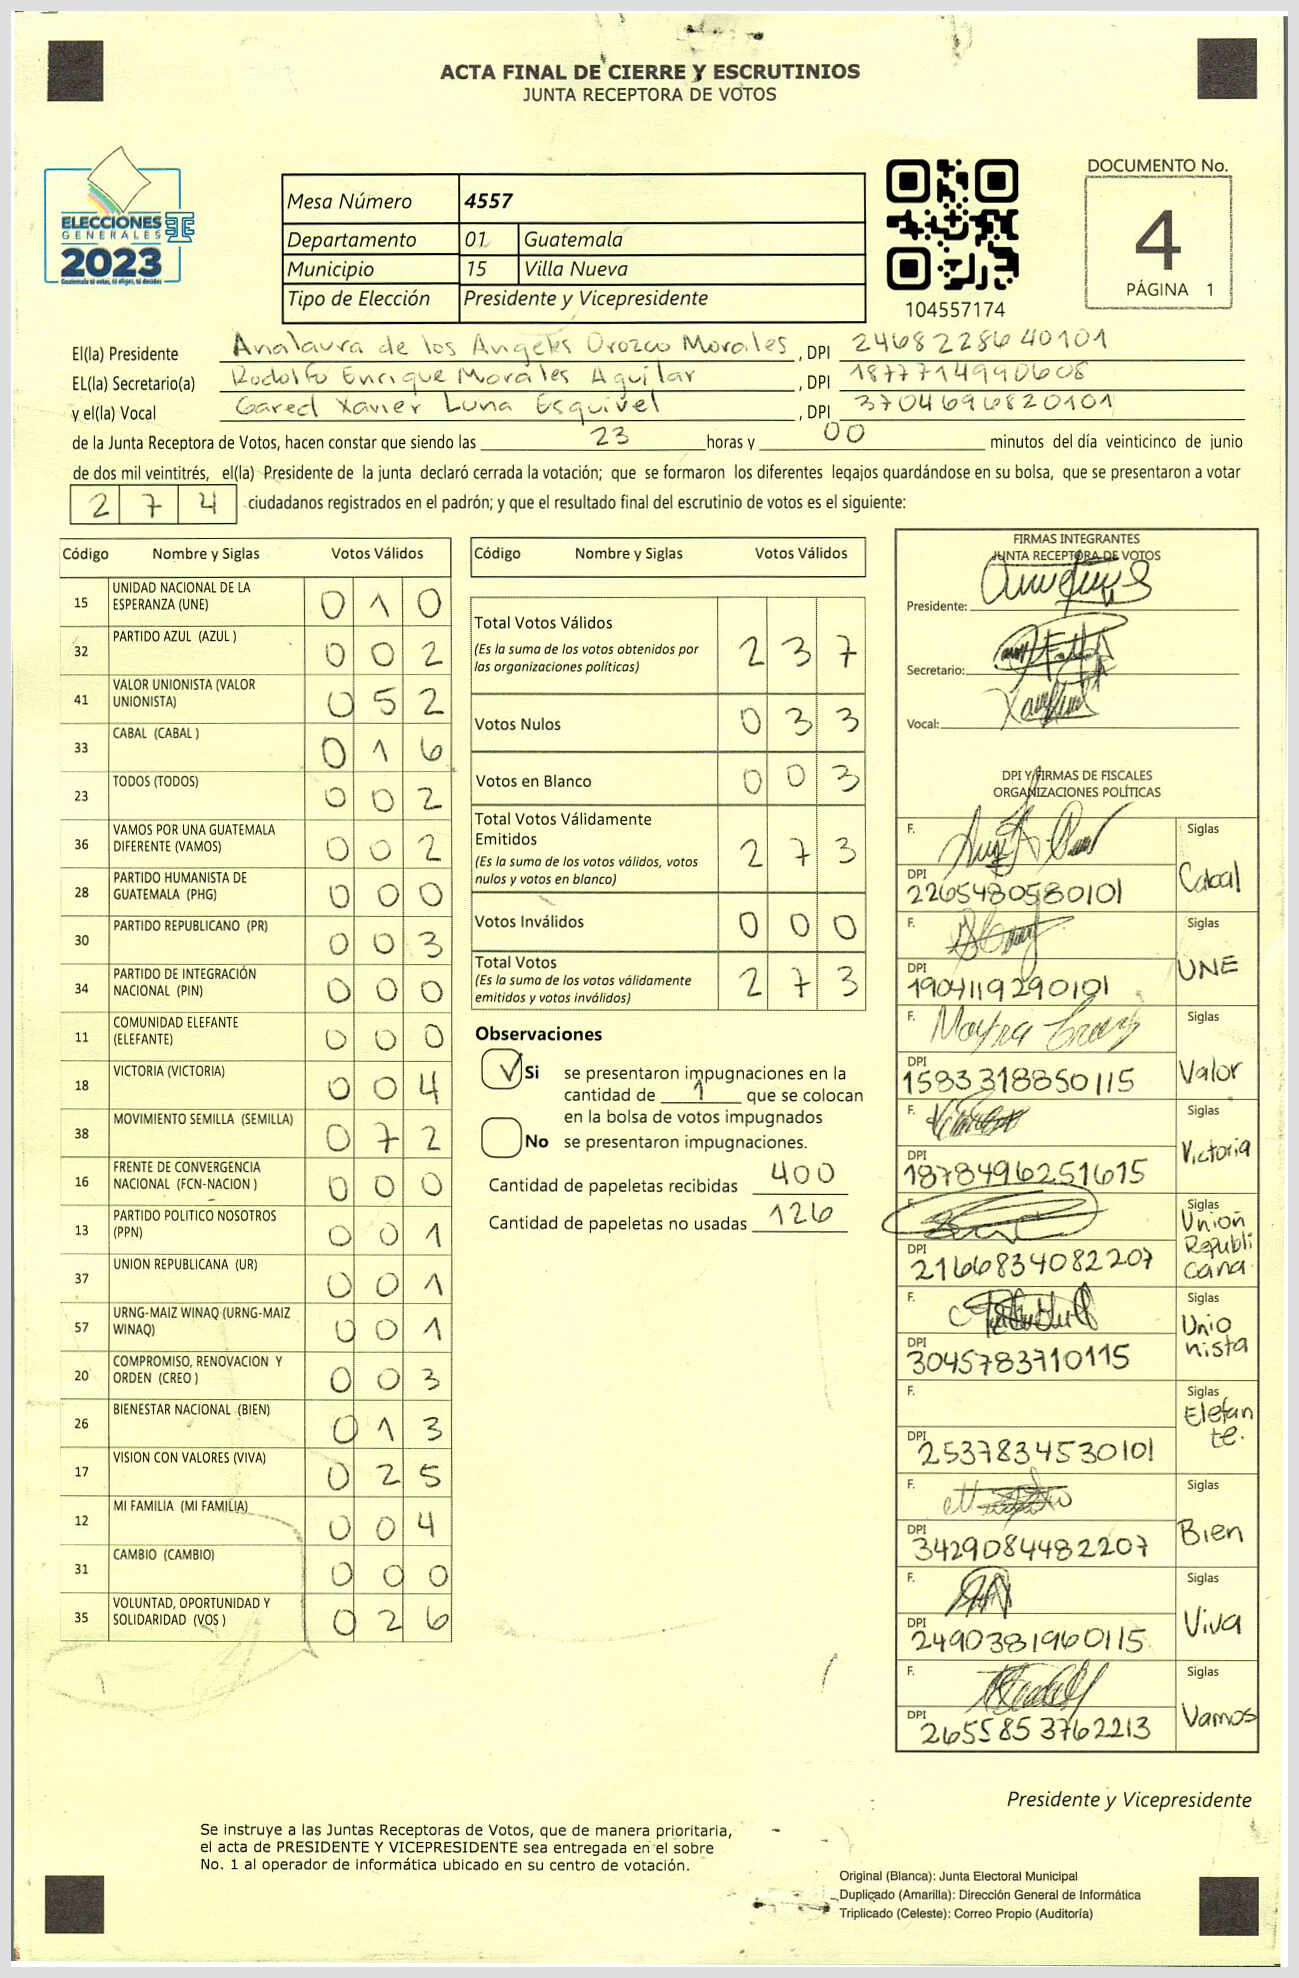 ACTA FINAL DE CIERRE Y ESCRUTINIOS
JUNTA RECEPTORA DE VOTOS
ELECCIONES
GENERALES
2023
Guatemala tú votas, tú eliges, tú decides
Mesa Número 4557
Departamento 01 Guatemala
Municipio 15 Villa Nueva
Tipo de Elección Presidente y Vicepresidente
104557174
DOCUMENTO No.
4
PÁGINA 1
El(la) Presidente Analaura de los Angeles Orozco Morales, DPI 2468228640101
EL(la) Secretario(a) Rodolfo Enrique Morales Aguilar, DPI 1877714990608
y el(la) Vocal Gared Xavier Luna Esquivel, DPI 3704696820101
de la Junta Receptora de Votos, hacen constar que siendo las 23 horas y 00 minutos del día veinticinco de junio
de dos mil veintitrés, el(la) Presidente de la junta declaró cerrada la votación; que se formaron los diferentes legajos guardándose en su bolsa, que se presentaron a votar
2 7 4 ciudadanos registrados en el padrón; y que el resultado final del escrutinio de votos es el siguiente:
Código Nombre y Siglas Votos Válidos
15 UNIDAD NACIONAL DE LA ESPERANZA (UNE) 0 1 0
32 PARTIDO AZUL (AZUL ) 0 0 2
41 VALOR UNIONISTA (VALOR UNIONISTA) 0 5 2
33 CABAL (CABAL ) 0 1 6
23 TODOS (TODOS) 0 0 2
36 VAMOS POR UNA GUATEMALA DIFERENTE (VAMOS) 0 0 2
28 PARTIDO HUMANISTA DE GUATEMALA (PHG) 0 0 0
30 PARTIDO REPUBLICANO (PR) 0 0 3
34 PARTIDO DE INTEGRACIÓN NACIONAL (PIN) 0 0 0
11 COMUNIDAD ELEFANTE (ELEFANTE) 0 0 0
18 VICTORIA (VICTORIA) 0 0 4
38 MOVIMIENTO SEMILLA (SEMILLA) 0 7 2
16 FRENTE DE CONVERGENCIA NACIONAL (FCN-NACION ) 0 0 0
13 PARTIDO POLITICO NOSOTROS (PPN) 0 0 1
37 UNION REPUBLICANA (UR) 0 0 1
57 URNG-MAIZ WINAQ (URNG-MAIZ WINAQ) 0 0 1
20 COMPROMISO, RENOVACION Y ORDEN (CREO ) 0 0 3
26 BIENESTAR NACIONAL (BIEN) 0 1 3
17 VISION CON VALORES (VIVA) 0 2 5
12 MI FAMILIA (MI FAMILIA) 0 0 4
31 CAMBIO (CAMBIO) 0 0 0
35 VOLUNTAD, OPORTUNIDAD Y SOLIDARIDAD (VOS ) 0 2 6
Código Nombre y Siglas Votos Válidos
Total Votos Válidos 2 3 7
(Es la suma de los votos obtenidos por
las organizaciones políticas)
Votos Nulos 0 3 3
Votos en Blanco 0 0 3
Total Votos Válidamente
Emitidos 2 7 3
(Es la suma de los votos válidos, votos
nulos y votos en blanco)
Votos Inválidos 0 0 0
Total Votos 2 7 3
(Es la suma de los votos válidamente
emitidos y votos inválidos)
Observaciones
Si se presentaron impugnaciones en la
cantidad de 1 que se colocan
en la bolsa de votos impugnados
No se presentaron impugnaciones.
Cantidad de papeletas recibidas 400
Cantidad de papeletas no usadas 126
FIRMAS INTEGRANTES
JUNTA RECEPTORA DE VOTOS
Presidente:
Secretario:
Vocal:
DPI Y FIRMAS DE FISCALES
ORGANIZACIONES POLÍTICAS
F. Siglas
DPI 2265480580101 Cabal
F. Siglas
DPI 1904119290101 UNE
F. Siglas
DPI 1583318850115 Valor
F. Siglas
DPI 1878496251615 Victoria
F. Siglas
DPI 2166834082207 Union Republi cana
F. Siglas
DPI 3045783710115 Unio nista
F. Siglas
DPI 2537834530101 Elefan te.
F. Siglas
DPI 3429084482207 Bien
F. Siglas
DPI 2490381960115 Viva
F. Siglas
DPI 2655853762213 Vamos
Presidente y Vicepresidente
Se instruye a las Juntas Receptoras de Votos, que de manera prioritaria,
el acta de PRESIDENTE Y VICEPRESIDENTE sea entregada en el sobre
No. 1 al operador de informática ubicado en su centro de votación.
Original (Blanca): Junta Electoral Municipal
Duplicado (Amarilla): Dirección General de Informática
Triplicado (Celeste): Correo Propio (Auditoría)